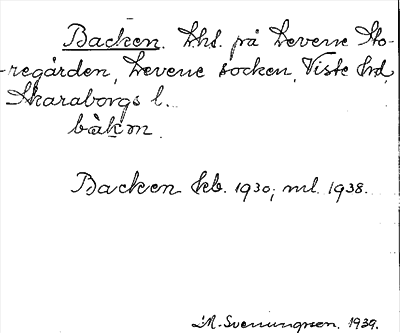 Backen. Lhs. på Levene Sto-
-regården, Levene socken, Viste hd,
Skaraborgs l.
bàkm̥.
Backen kb. 1930; ml. 1938.
M. Svenungsen. 1939.